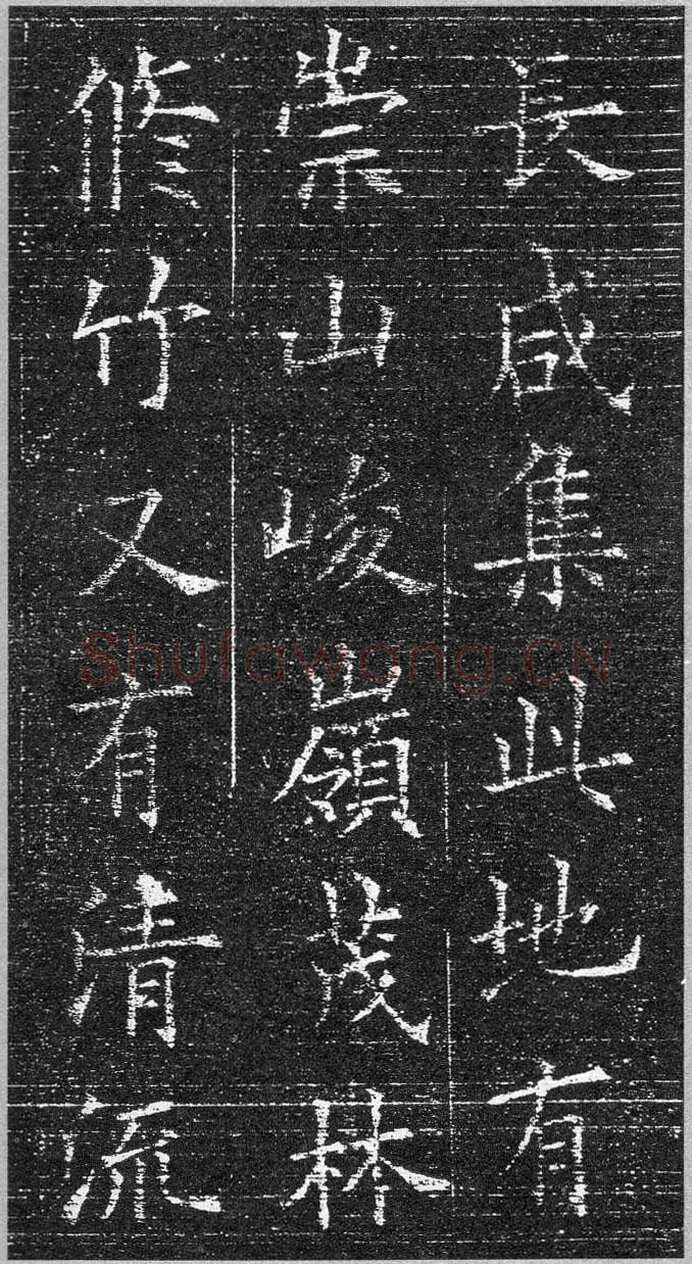 長咸集此地有
崇山峻嶺茂林
修竹又有清流
Shufawang.CN